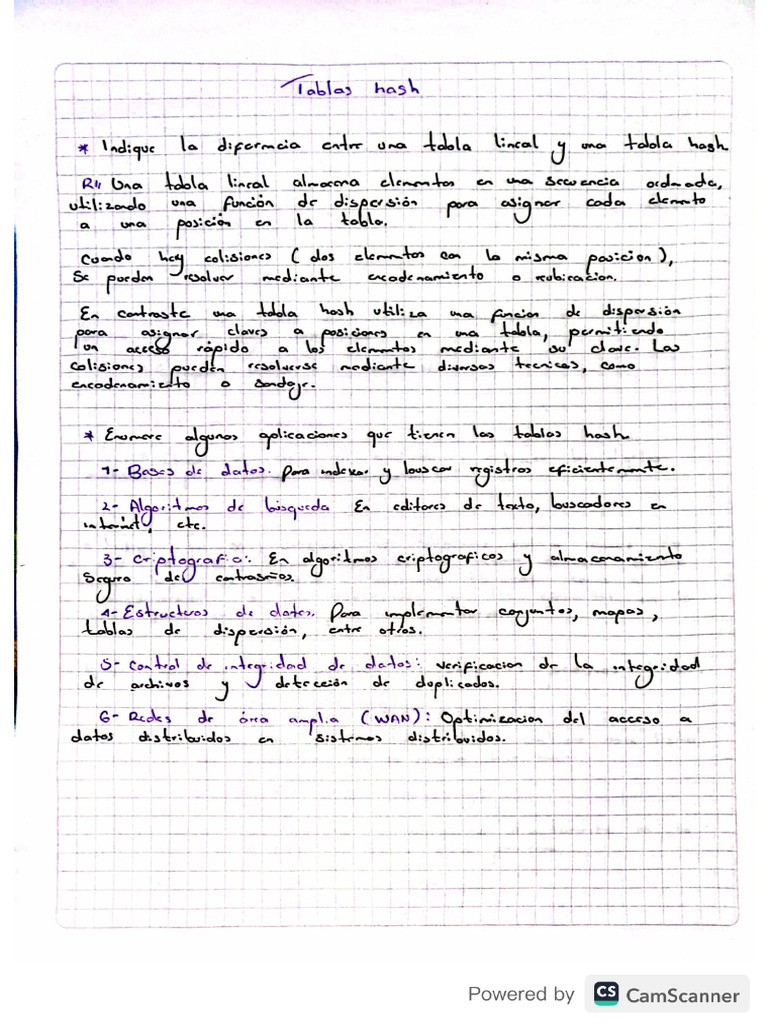 Tablas hash
* Indique la diferencia entre una tabla lineal y una tabla hash
R// Una tabla lineal almacena elementos en una secuencia ordenada,
utilizando una función de dispersión para asignar cada elemento
a una posición en la tabla.
Cuando hay colisiones (dos elementos con la misma posicion),
Se pueden resolver mediante encadenamiento o reubicacion.
En contraste una tabla hash utiliza una funcion de dispersión
para asignar claves a posiciones en una tabla, permitiendo
un acceso rápido a los elementos mediante su clave. Las
colisiones pueden resolverse mediante diversas tecnicas, como
encadenamiento o sondaje.
* Enumere algunas aplicaciones que tienen las tablas hash
1- Bases de datos. para indexar y buscar registros eficientemente.
2- Algoritmos de búsqueda En editores de texto, buscadores en
internet, etc.
3- Criptografia: En algoritmos criptograficos y almacenamiento
Seguro de contraseñas.
4- Estructuras de datos. Para implementar conjuntos, mapas,
tablas de dispersión, entre otros.
5- Control de integridad de datos: verificacion de la integridad
de archivos y detección de duplicados.
6- Redes de área amplia (WAN): Optimizacion del acceso a
datos distribuidos en sistemas distribuidos.
Powered by CS CamScanner